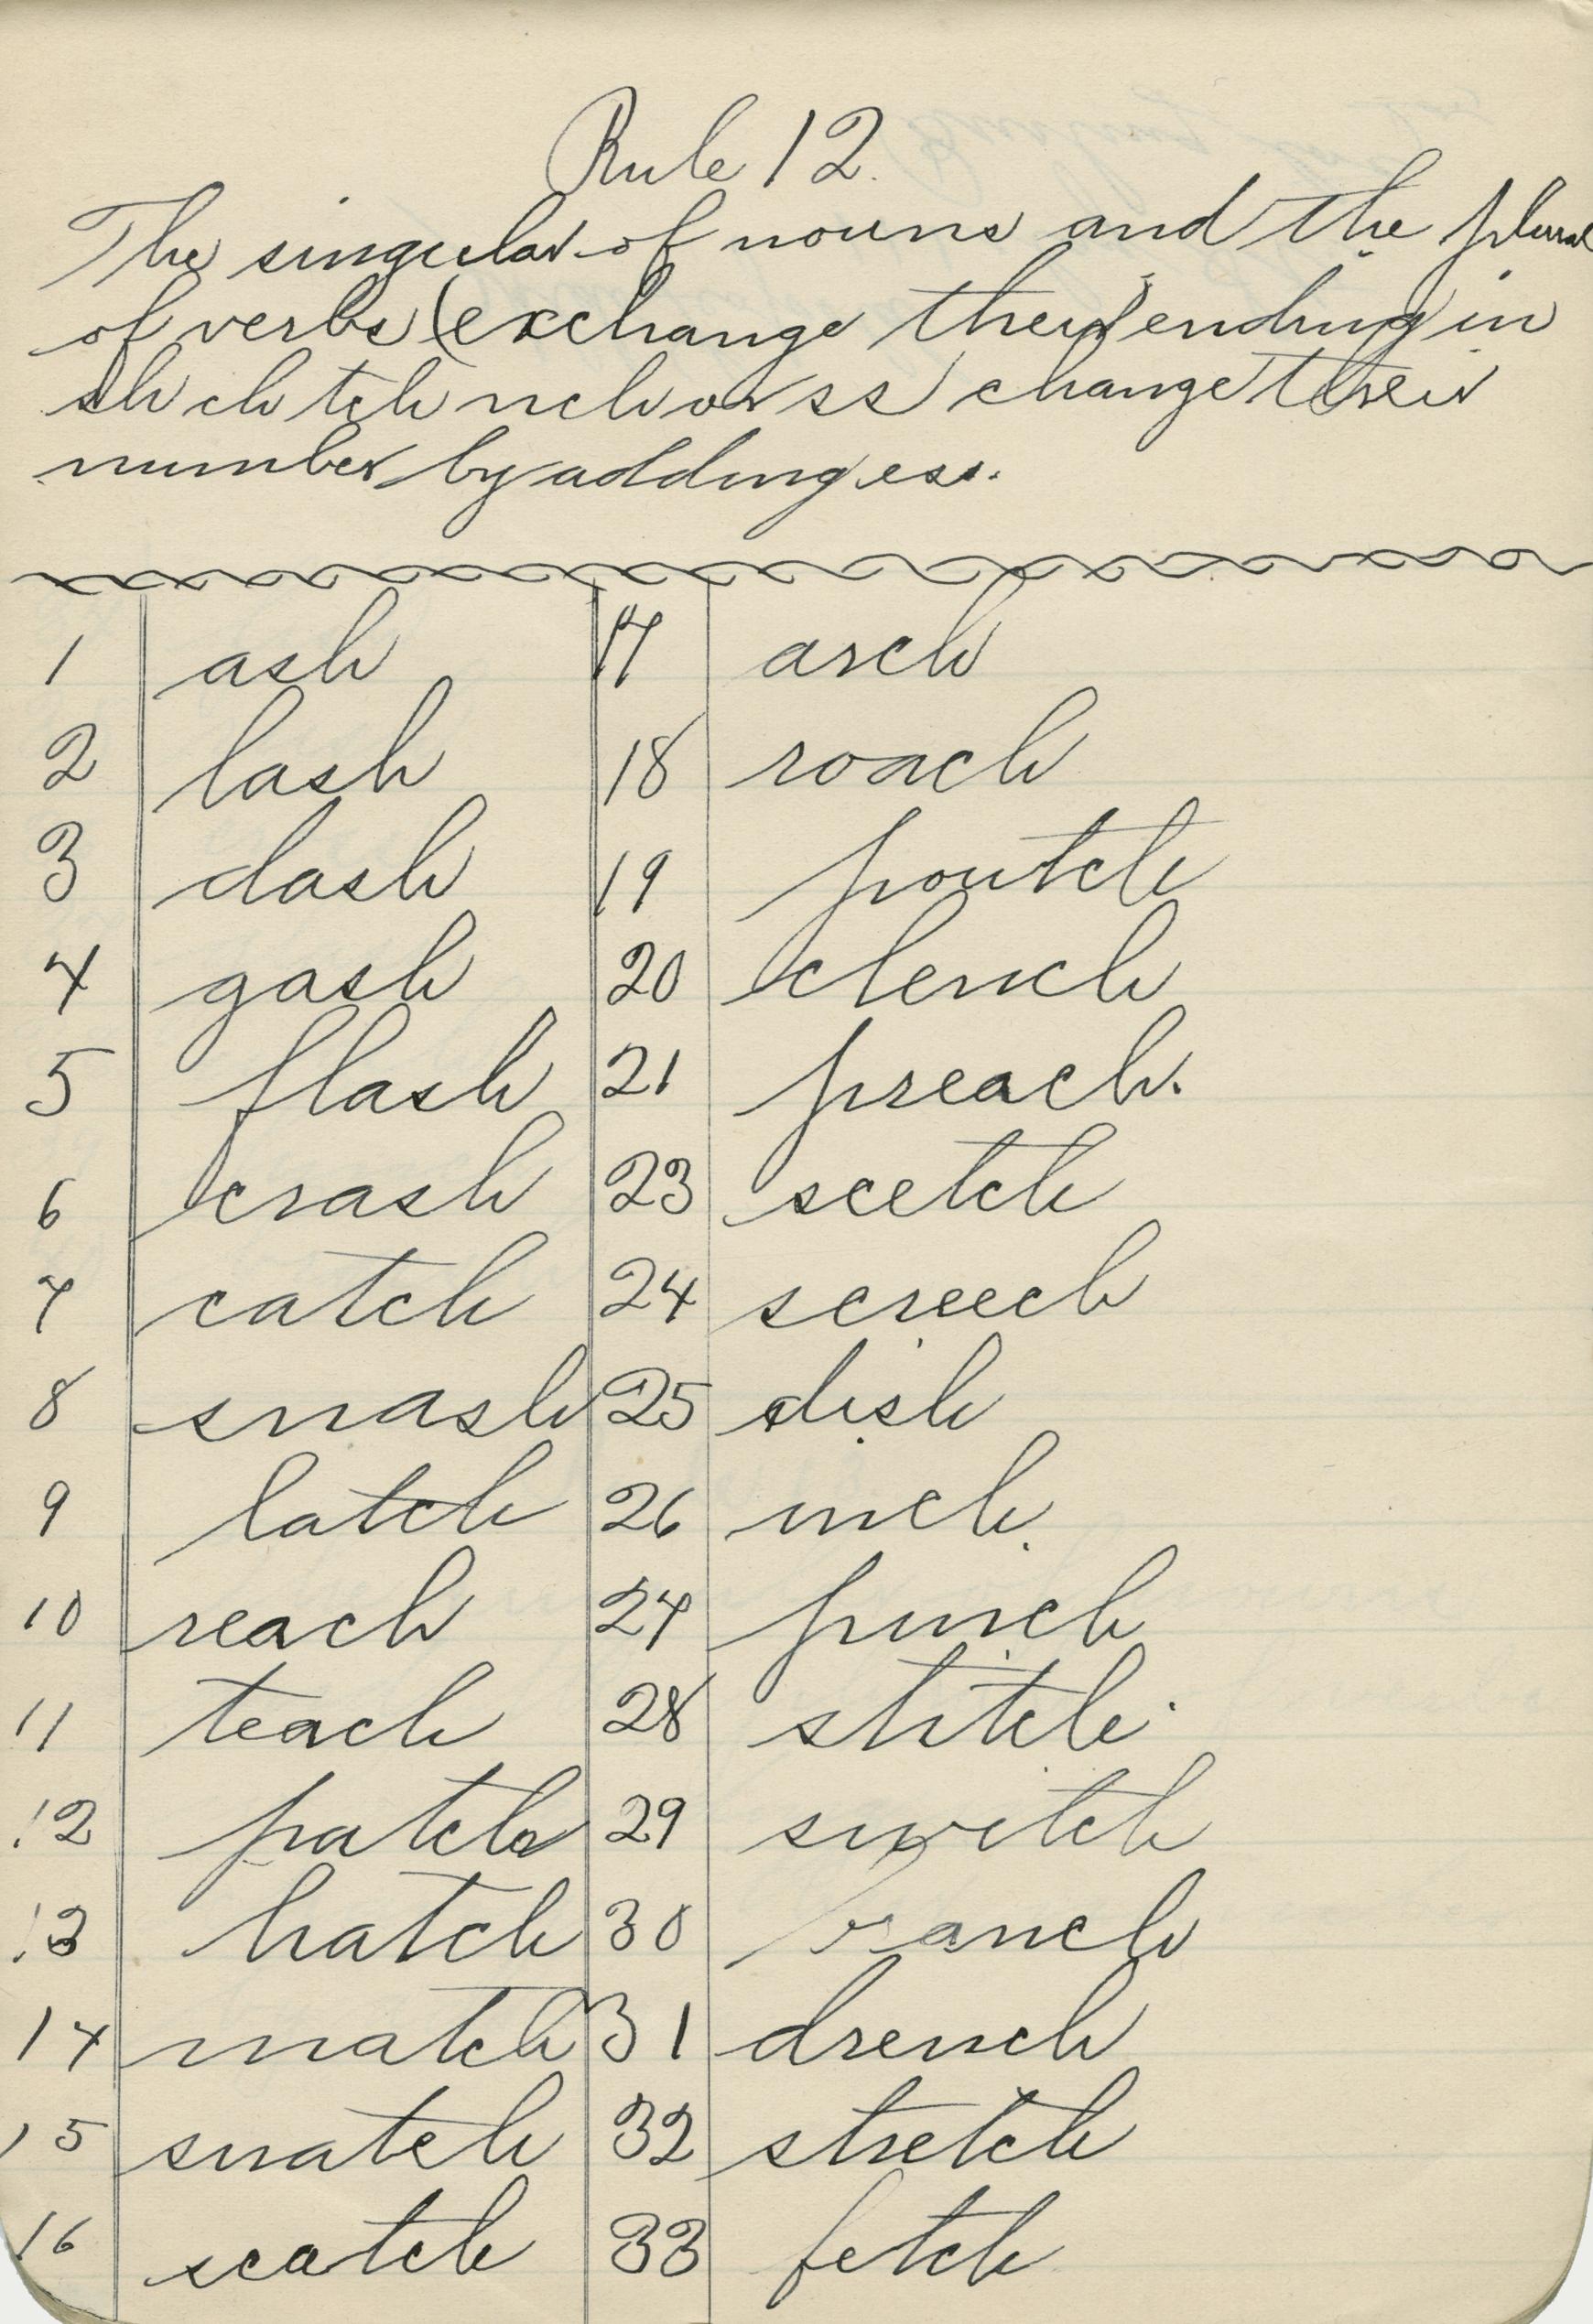 Rule 12.
The singular of nouns and the plural
of verbs (exchange their) ending in
sh ch tch nch or ss change their
number by adding es.
1 ash 17 arch
2 lash 18 roach
3 dash 19 poutch
4 gash 20 clench
5 flash 21 preach.
6 crash 23 scetch
7 catch 24 screech
8 smash 25 dish
9 latch 26 inch
10 reach 27 punch
11 teach 28 stitch
12 patch 29 switch
13 hatch 30 ranch
14 match 31 drench
15 snatch 32 stretch
16 scatch 33 fetch